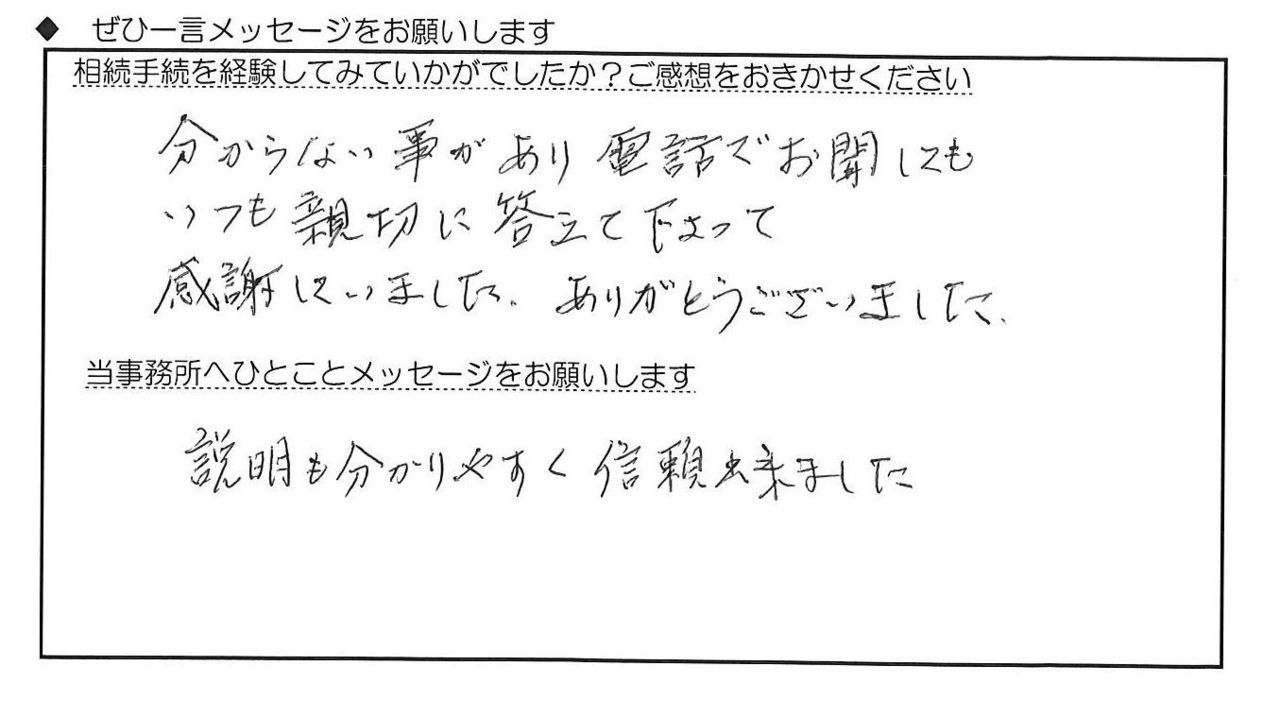 ◆ ぜひ一言メッセージをお願いします
相続手続を経験してみていかがでしたか？ご感想をおきかせください
分からない事があり電話でお聞しても
いつも親切に答えて下さって
感謝していました。ありがとうございました。
当事務所へひとことメッセージをお願いします
説明も分かりやすく信頼出来ました